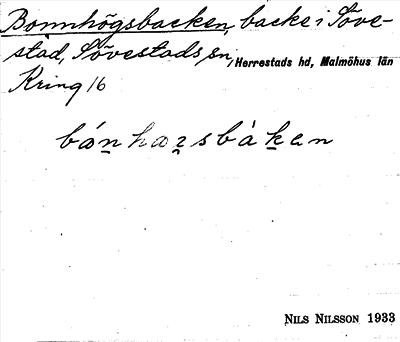 Bonnhögsbacken, backe i Söve-
stad, Sövestads sn, Herrestads hd, Malmöhus län
Kring 16
bánhazsbàken
NILS NILSSON 1933